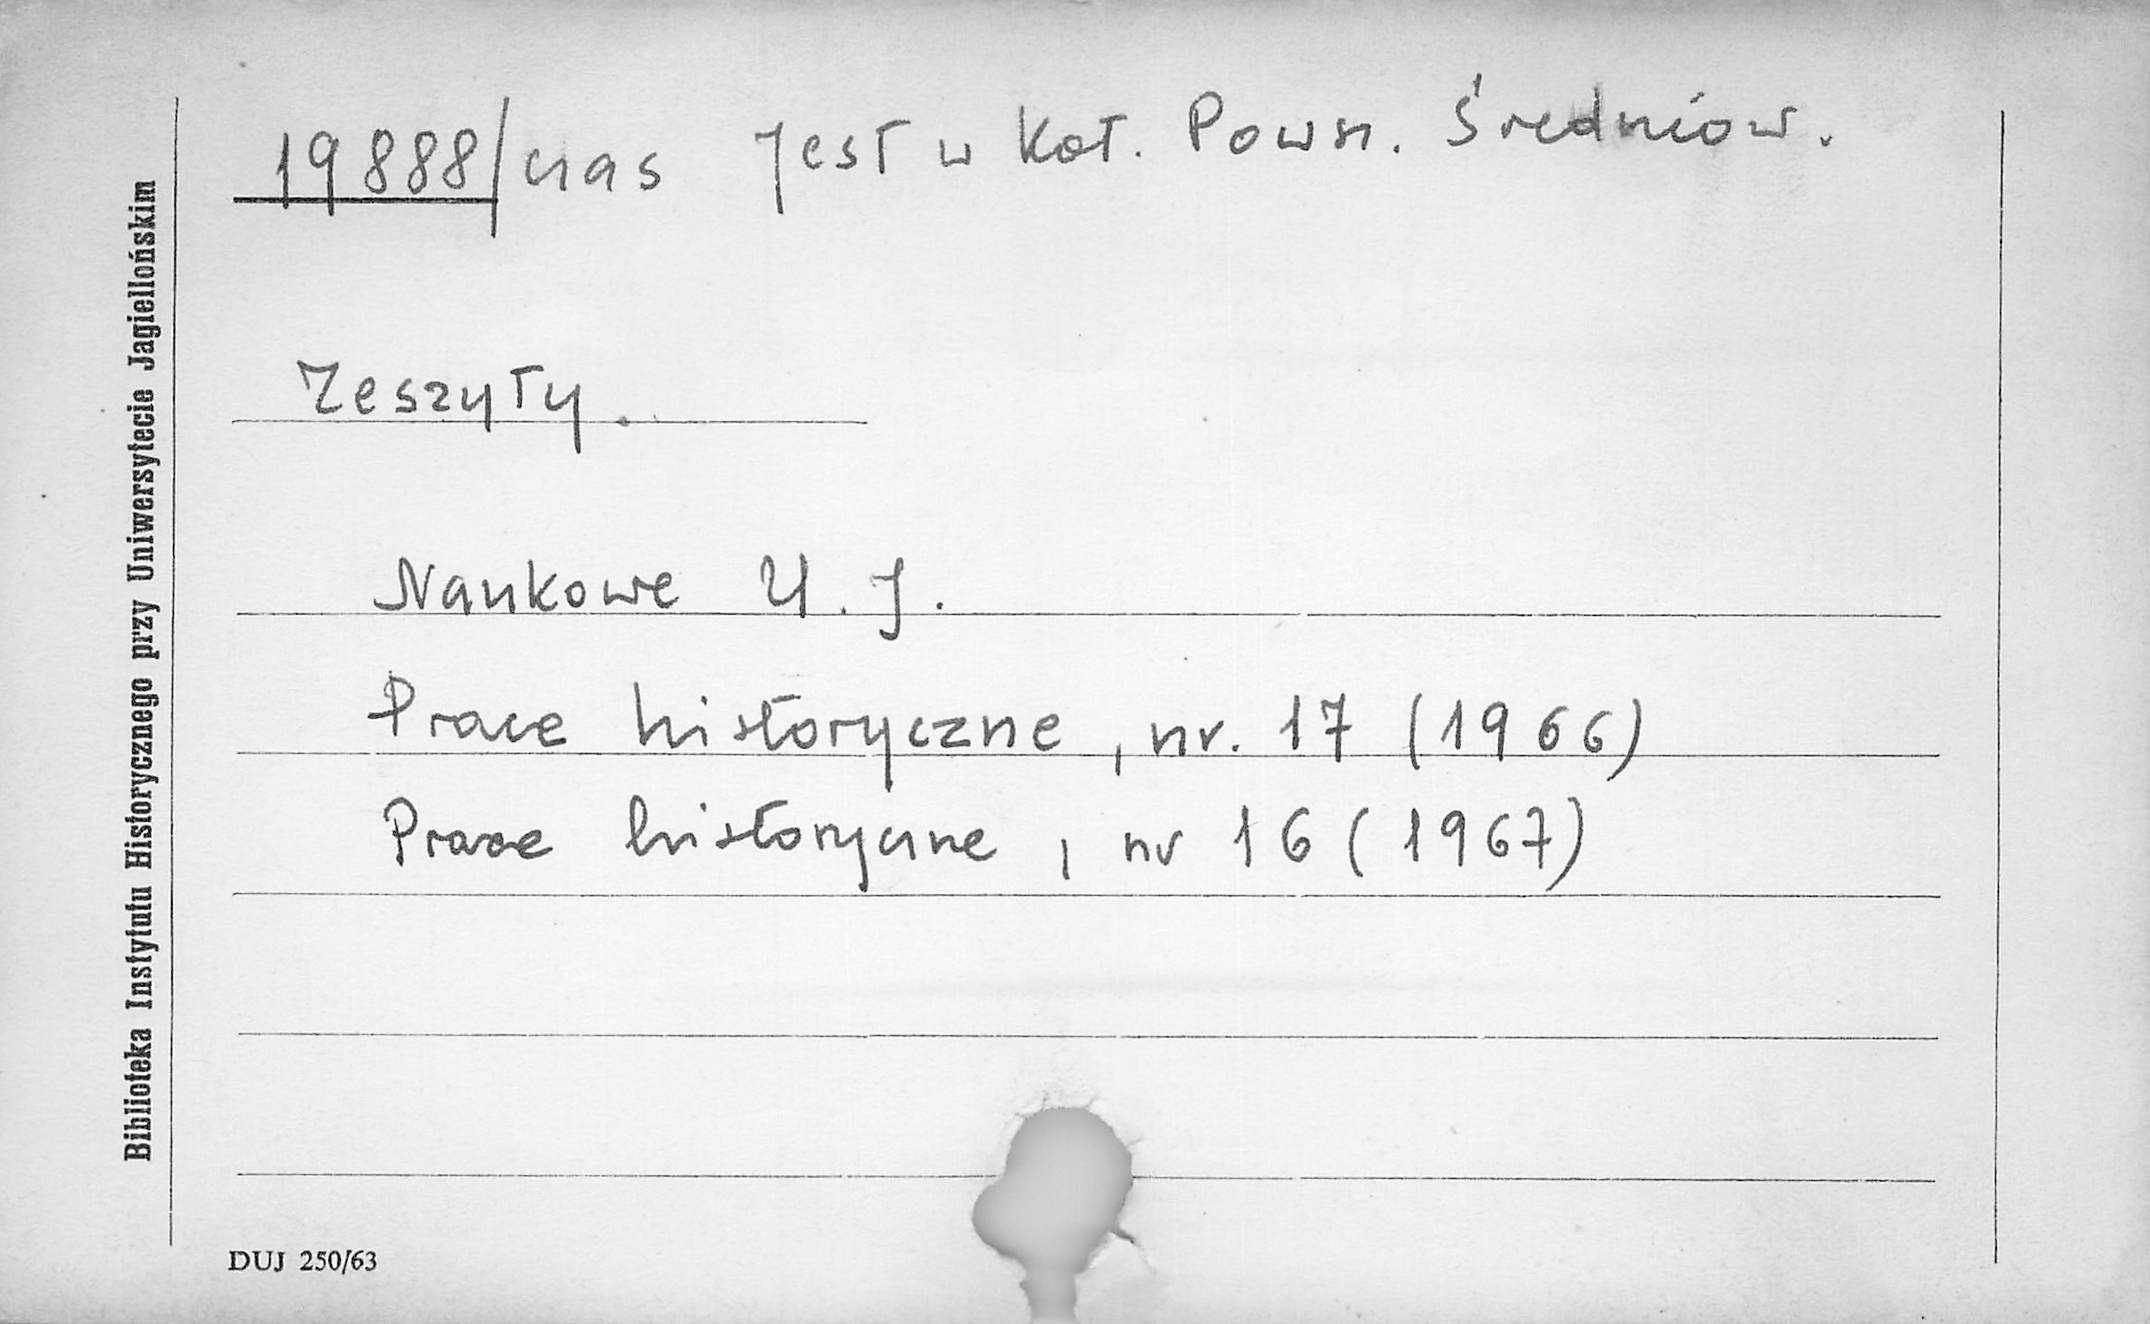 19888/czas Jest w Kat. Powsz. Średniow.
Zeszyty.
Naukowe U. J.
Prace historyczne, nr. 17 (1966)
Prace historyczne, nr 16 (1967)
Biblioteka Instytutu Historycznego przy Uniwersytecie Jagiellońskim
DUJ 250/63